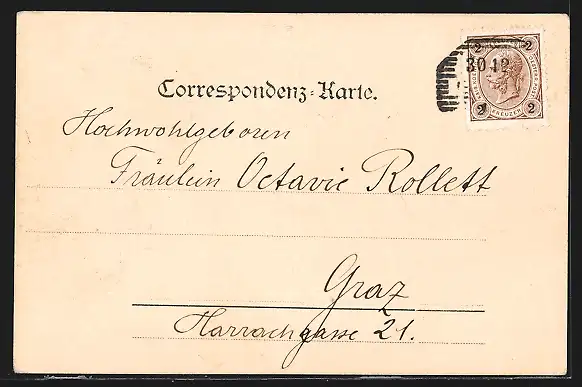 2 2
30 12
2 KREUZER 2
Correspondenz-Karte.
Hochwohlgeboren
Fräulein Octavie Rollett
Graz
Harrachgasse 21.